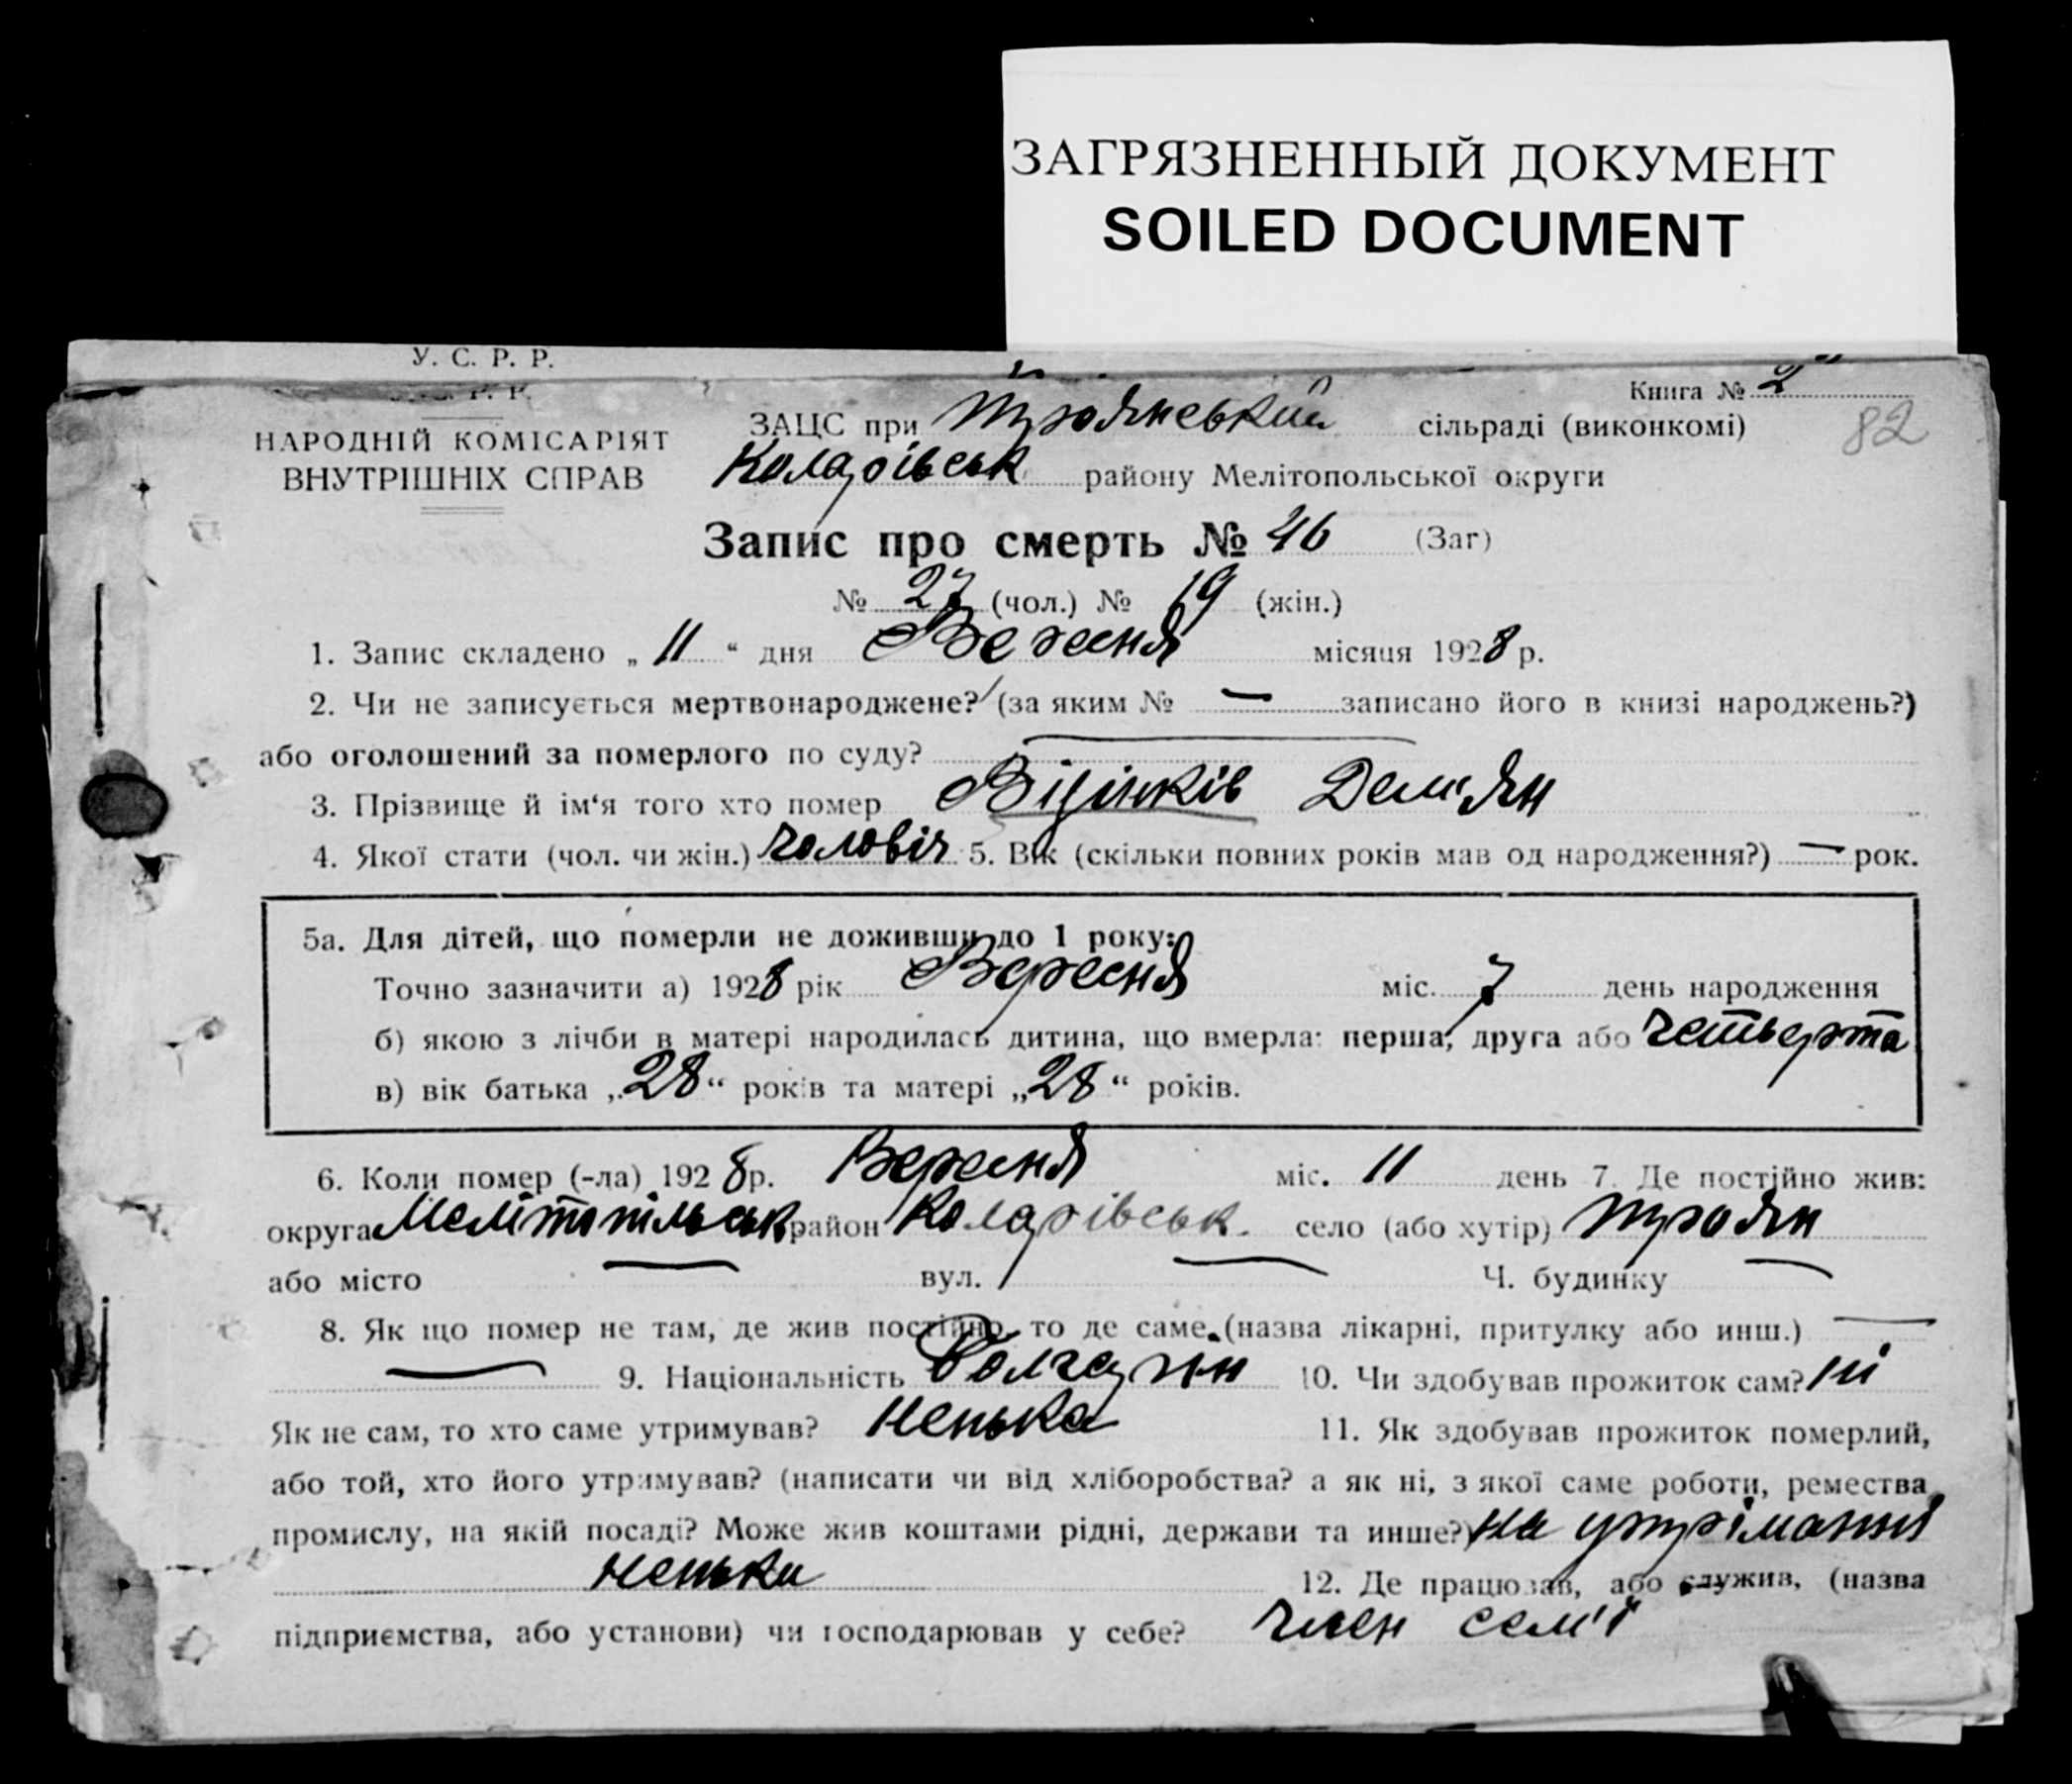 ЗАГРЯЗНЕННЫЙ ДОКУМЕНТ
SOILED DOCUMENT
У. С. Р. Р.
Книга № 2
82
НАРОДНІЙ КОМІСАРІЯТ
ВНУТРІШНІХ СПРАВ
ЗАЦС при Троянський сільраді (виконкомі)
Коларівськ району Мелітопольської округи
Запис про смерть № 46 (Заг)
№ 27 (чол.) № 19 (жін.)
1. Запис складено „ 11 “ дня Вересня місяця 1928 р.
2. Чи не записується мертвонароджене? (за яким № — записано його в книзі народжень?)
або оголошений за померлого по суду? —
3. Прізвище й ім‘я того хто помер Дем'ян
4. Якої стати (чол. чи жін.) чоловіч 5. Вік (скільки повних років мав од народження?) — рок.
5а. Для дітей, що померли не доживши до 1 року:
Точно зазначити а) 1928 рік Вересня міс. 7 день народження
б) якою з лічби в матері народилась дитина, що вмерла: перша, друга або четверта
в) вік батька „28“ років та матері „28“ років.
6. Коли помер (-ла) 1928 р. Вересня міс. 11 день 7. Де постійно жив:
округа Мелітопільськ район Коларівськ. село (або хутір) Троян
або місто — вул. — Ч. будинку —
8. Як що помер не там, де жив постійно, то де саме (назва лікарні, притулку або инш.) —
— 9. Національність Болгарин 10. Чи здобував прожиток сам? ні
Як не сам, то хто саме утримував? Ненька 11. Як здобував прожиток померлий,
або той, хто його утримував? (написати чи від хліборобства? а як ні, з якої саме роботи, ремества,
промислу, на якій посаді? Може жив коштами рідні, держави та инше?) на утріманні
неньки 12. Де працював, або служив, (назва
підприємства, або установи) чи господарював у себе? член сем'ї